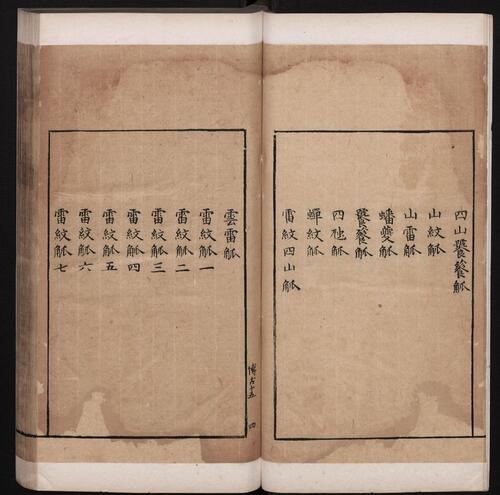 四山饕餮觚
山紋觚
山雷觚
蟠夔觚
饕餮觚
四象觚
蟬紋觚
雷紋四山觚
雲雷觚
雷紋觚一
雷紋觚二
雷紋觚三
雷紋觚四
雷紋觚五
雷紋觚六
雷紋觚七
博古十五
四